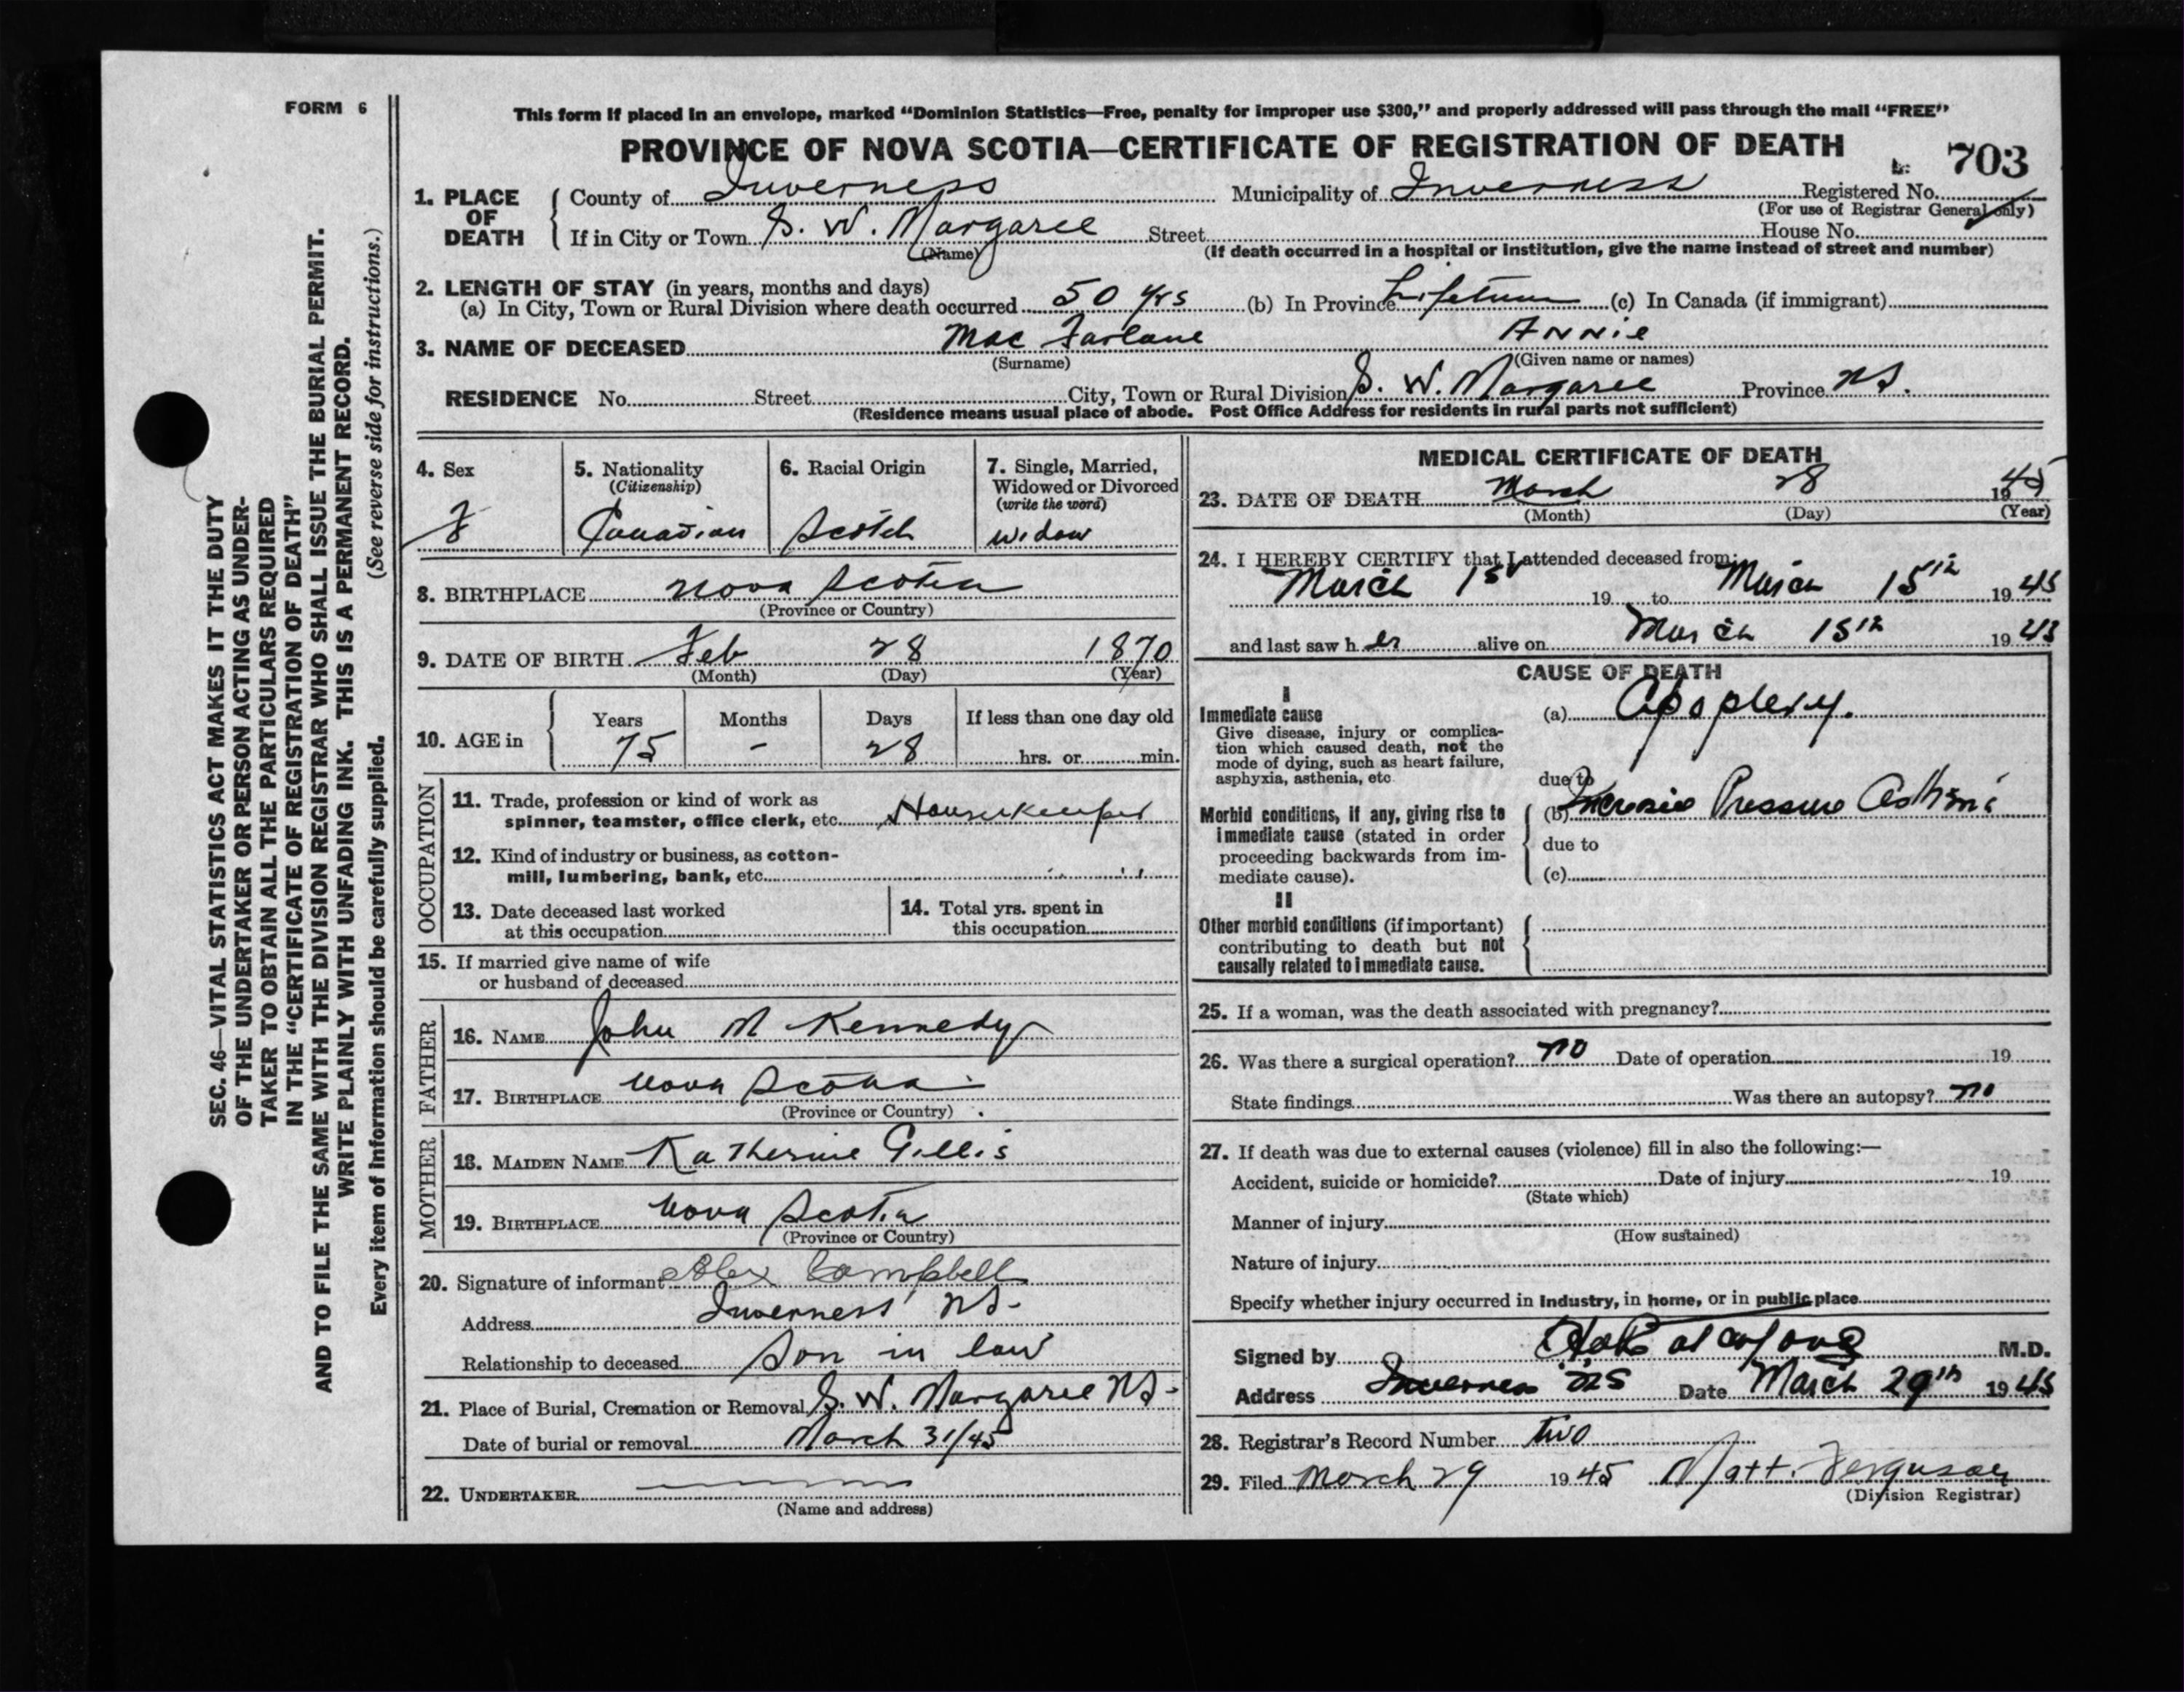 FORM 6
This form if placed in an envelope, marked "Dominion Statistics—Free, penalty for improper use $300," and properly addressed will pass through the mail "FREE"
PROVINCE OF NOVA SCOTIA—CERTIFICATE OF REGISTRATION OF DEATH
703
1. PLACE OF DEATH
County of Inverness Municipality of Inverness Registered No.
(For use of Registrar General only)
If in City or Town S. W. Margaree Street House No.
(Name) (If death occurred in a hospital or institution, give the name instead of street and number)
2. LENGTH OF STAY (in years, months and days)
(a) In City, Town or Rural Division where death occurred 50 yrs (b) In Province Lifetime (c) In Canada (if immigrant)
3. NAME OF DECEASED Mac Farlane Annie
(Surname) (Given name or names)
RESIDENCE No. Street City, Town or Rural Division S. W. Margaree Province N.S.
(Residence means usual place of abode. Post Office Address for residents in rural parts not sufficient)
4. Sex
F
5. Nationality
(Citizenship)
Canadian
6. Racial Origin
Scotch
7. Single, Married,
Widowed or Divorced
(write the word)
widow
8. BIRTHPLACE Nova Scotia
(Province or Country)
9. DATE OF BIRTH Feb 28 1870
(Month) (Day) (Year)
10. AGE in
Years Months Days If less than one day old
75 - 28 hrs. or min.
OCCUPATION
11. Trade, profession or kind of work as
spinner, teamster, office clerk, etc. Housekeeper
12. Kind of industry or business, as cotton-
mill, lumbering, bank, etc. " "
13. Date deceased last worked
at this occupation
14. Total yrs. spent in
this occupation
15. If married give name of wife
or husband of deceased
FATHER
16. NAME John M Kennedy
17. BIRTHPLACE Nova Scotia
(Province or Country)
MOTHER
18. MAIDEN NAME Katherine Gillis
19. BIRTHPLACE Nova Scotia
(Province or Country)
20. Signature of informant Alex Campbell
Address Inverness N.S.
Relationship to deceased Son in law
21. Place of Burial, Cremation or Removal S. W. Margaree N.S.
Date of burial or removal March 31/45
22. UNDERTAKER
(Name and address)
MEDICAL CERTIFICATE OF DEATH
23. DATE OF DEATH March 28 1945
(Month) (Day) (Year)
24. I HEREBY CERTIFY that I attended deceased from:
March 1st 19 to March 15th 1945
and last saw h er alive on March 15th 1945
CAUSE OF DEATH
I
Immediate cause
Give disease, injury or complica-
tion which caused death, not the
mode of dying, such as heart failure,
asphyxia, asthenia, etc.
(a) Apoplexy.
due to
Morbid conditions, if any, giving rise to
immediate cause (stated in order
proceeding backwards from im-
mediate cause).
(b) Pressure
due to
(c)
II
Other morbid conditions (if important)
contributing to death but not
causally related to immediate cause.
25. If a woman, was the death associated with pregnancy?
26. Was there a surgical operation? no Date of operation 19
State findings Was there an autopsy? no
27. If death was due to external causes (violence) fill in also the following:—
Accident, suicide or homicide? Date of injury 19
(State which)
Manner of injury
(How sustained)
Nature of injury
Specify whether injury occurred in Industry, in home, or in public place
Signed by M.D.
Address Inverness NS Date March 29th 1945
28. Registrar's Record Number two
29. Filed March 29 1945 Matt. Ferguson
(Division Registrar)
SEC. 46—VITAL STATISTICS ACT MAKES IT THE DUTY
OF THE UNDERTAKER OR PERSON ACTING AS UNDER-
TAKER TO OBTAIN ALL THE PARTICULARS REQUIRED
IN THE "CERTIFICATE OF REGISTRATION OF DEATH"
AND TO FILE THE SAME WITH THE DIVISION REGISTRAR WHO SHALL ISSUE THE BURIAL PERMIT.
WRITE PLAINLY WITH UNFADING INK. THIS IS A PERMANENT RECORD.
Every item of information should be carefully supplied. (See reverse side for instructions.)